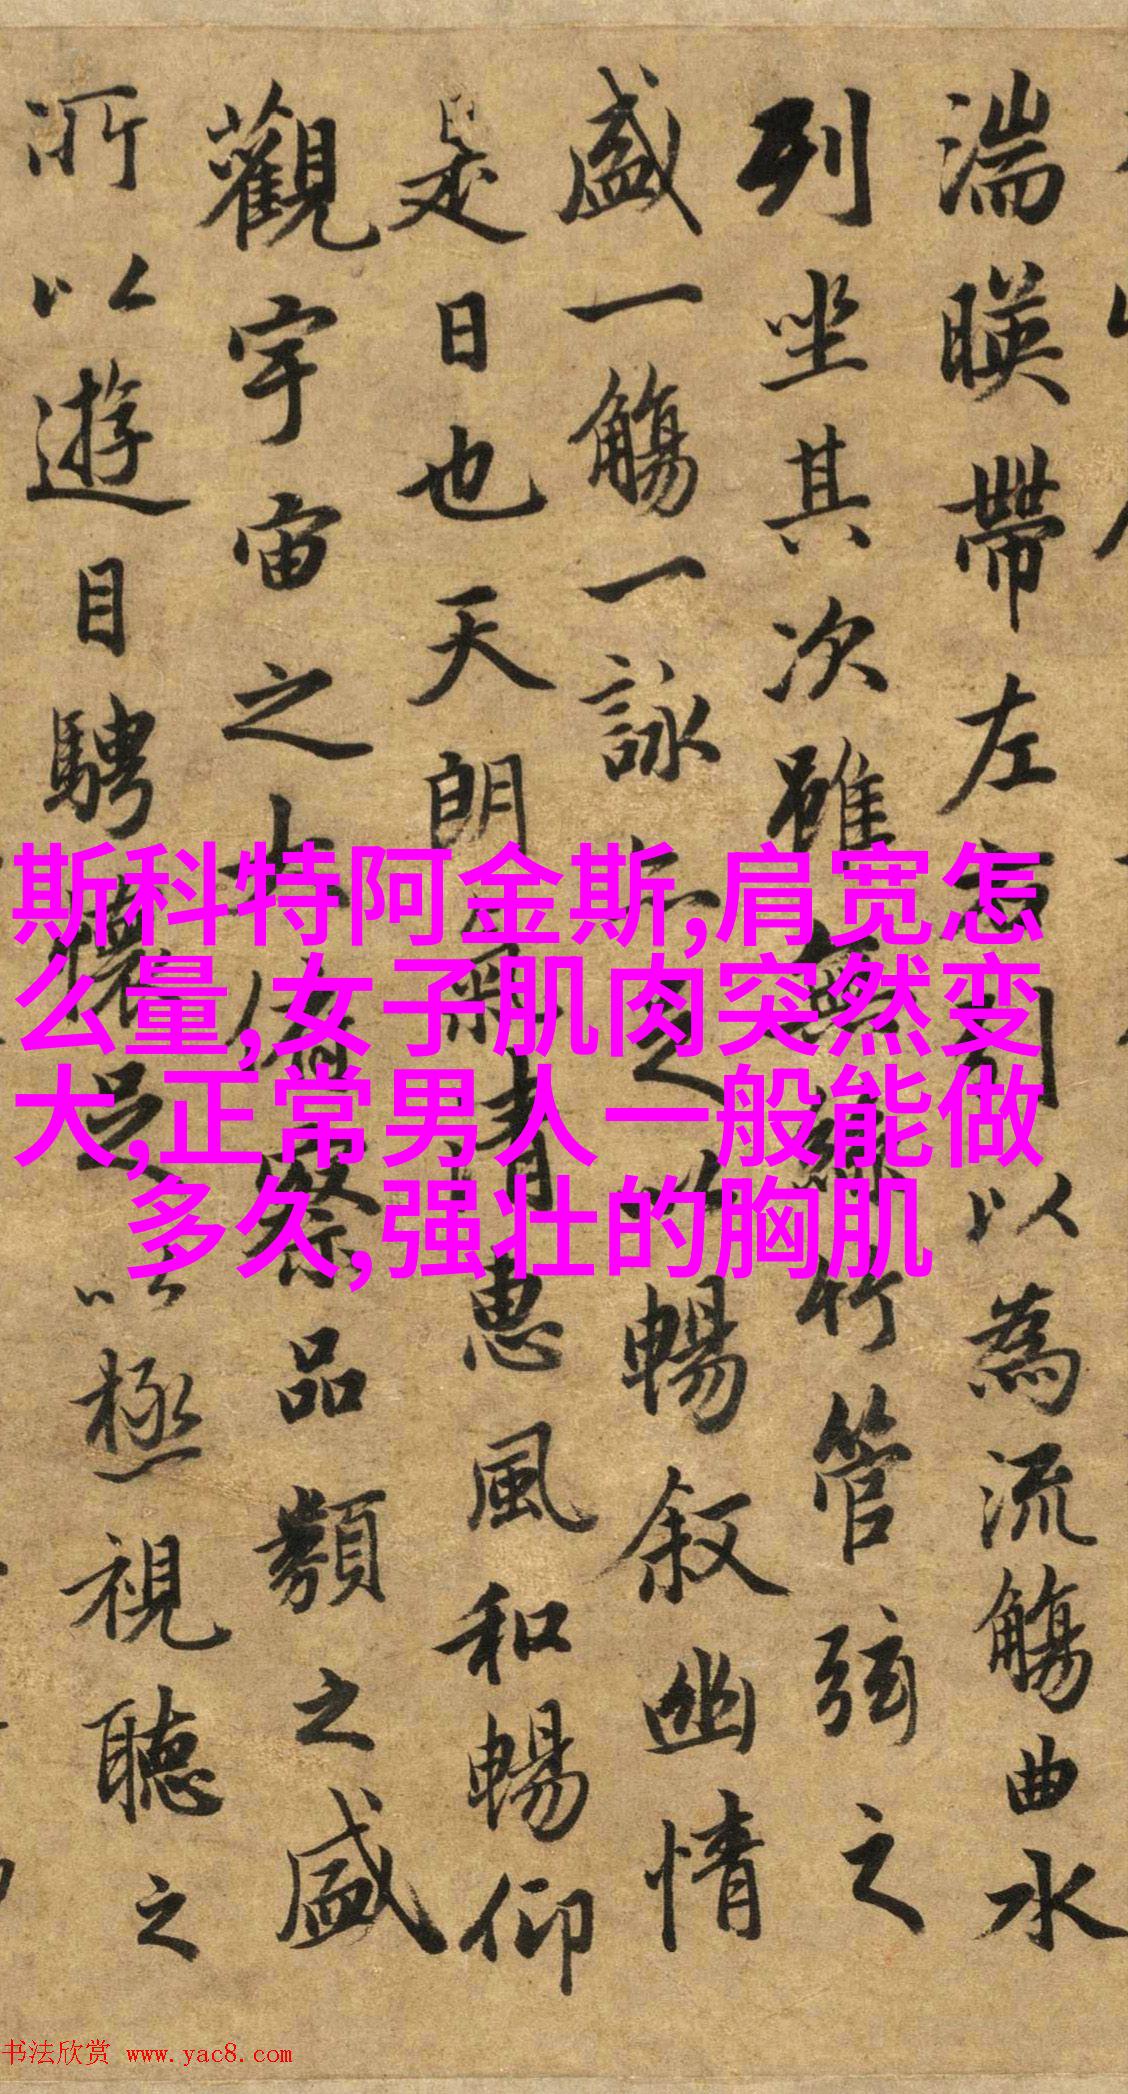 湍暎帶左右引以為流觴曲水
列坐其次雖無絲竹管弦之
盛一觴一詠亦足以暢叙幽情
是日也天朗氣清惠風和暢仰
觀宇宙之大俯察品類之盛
所以遊目騁懷足以極視聽之
斯科特阿金斯,肩宽怎
么量,女子肌肉突然变
大,正常男人一般能做
多久,强壮的胸肌
书法欣赏 www.yac8.com